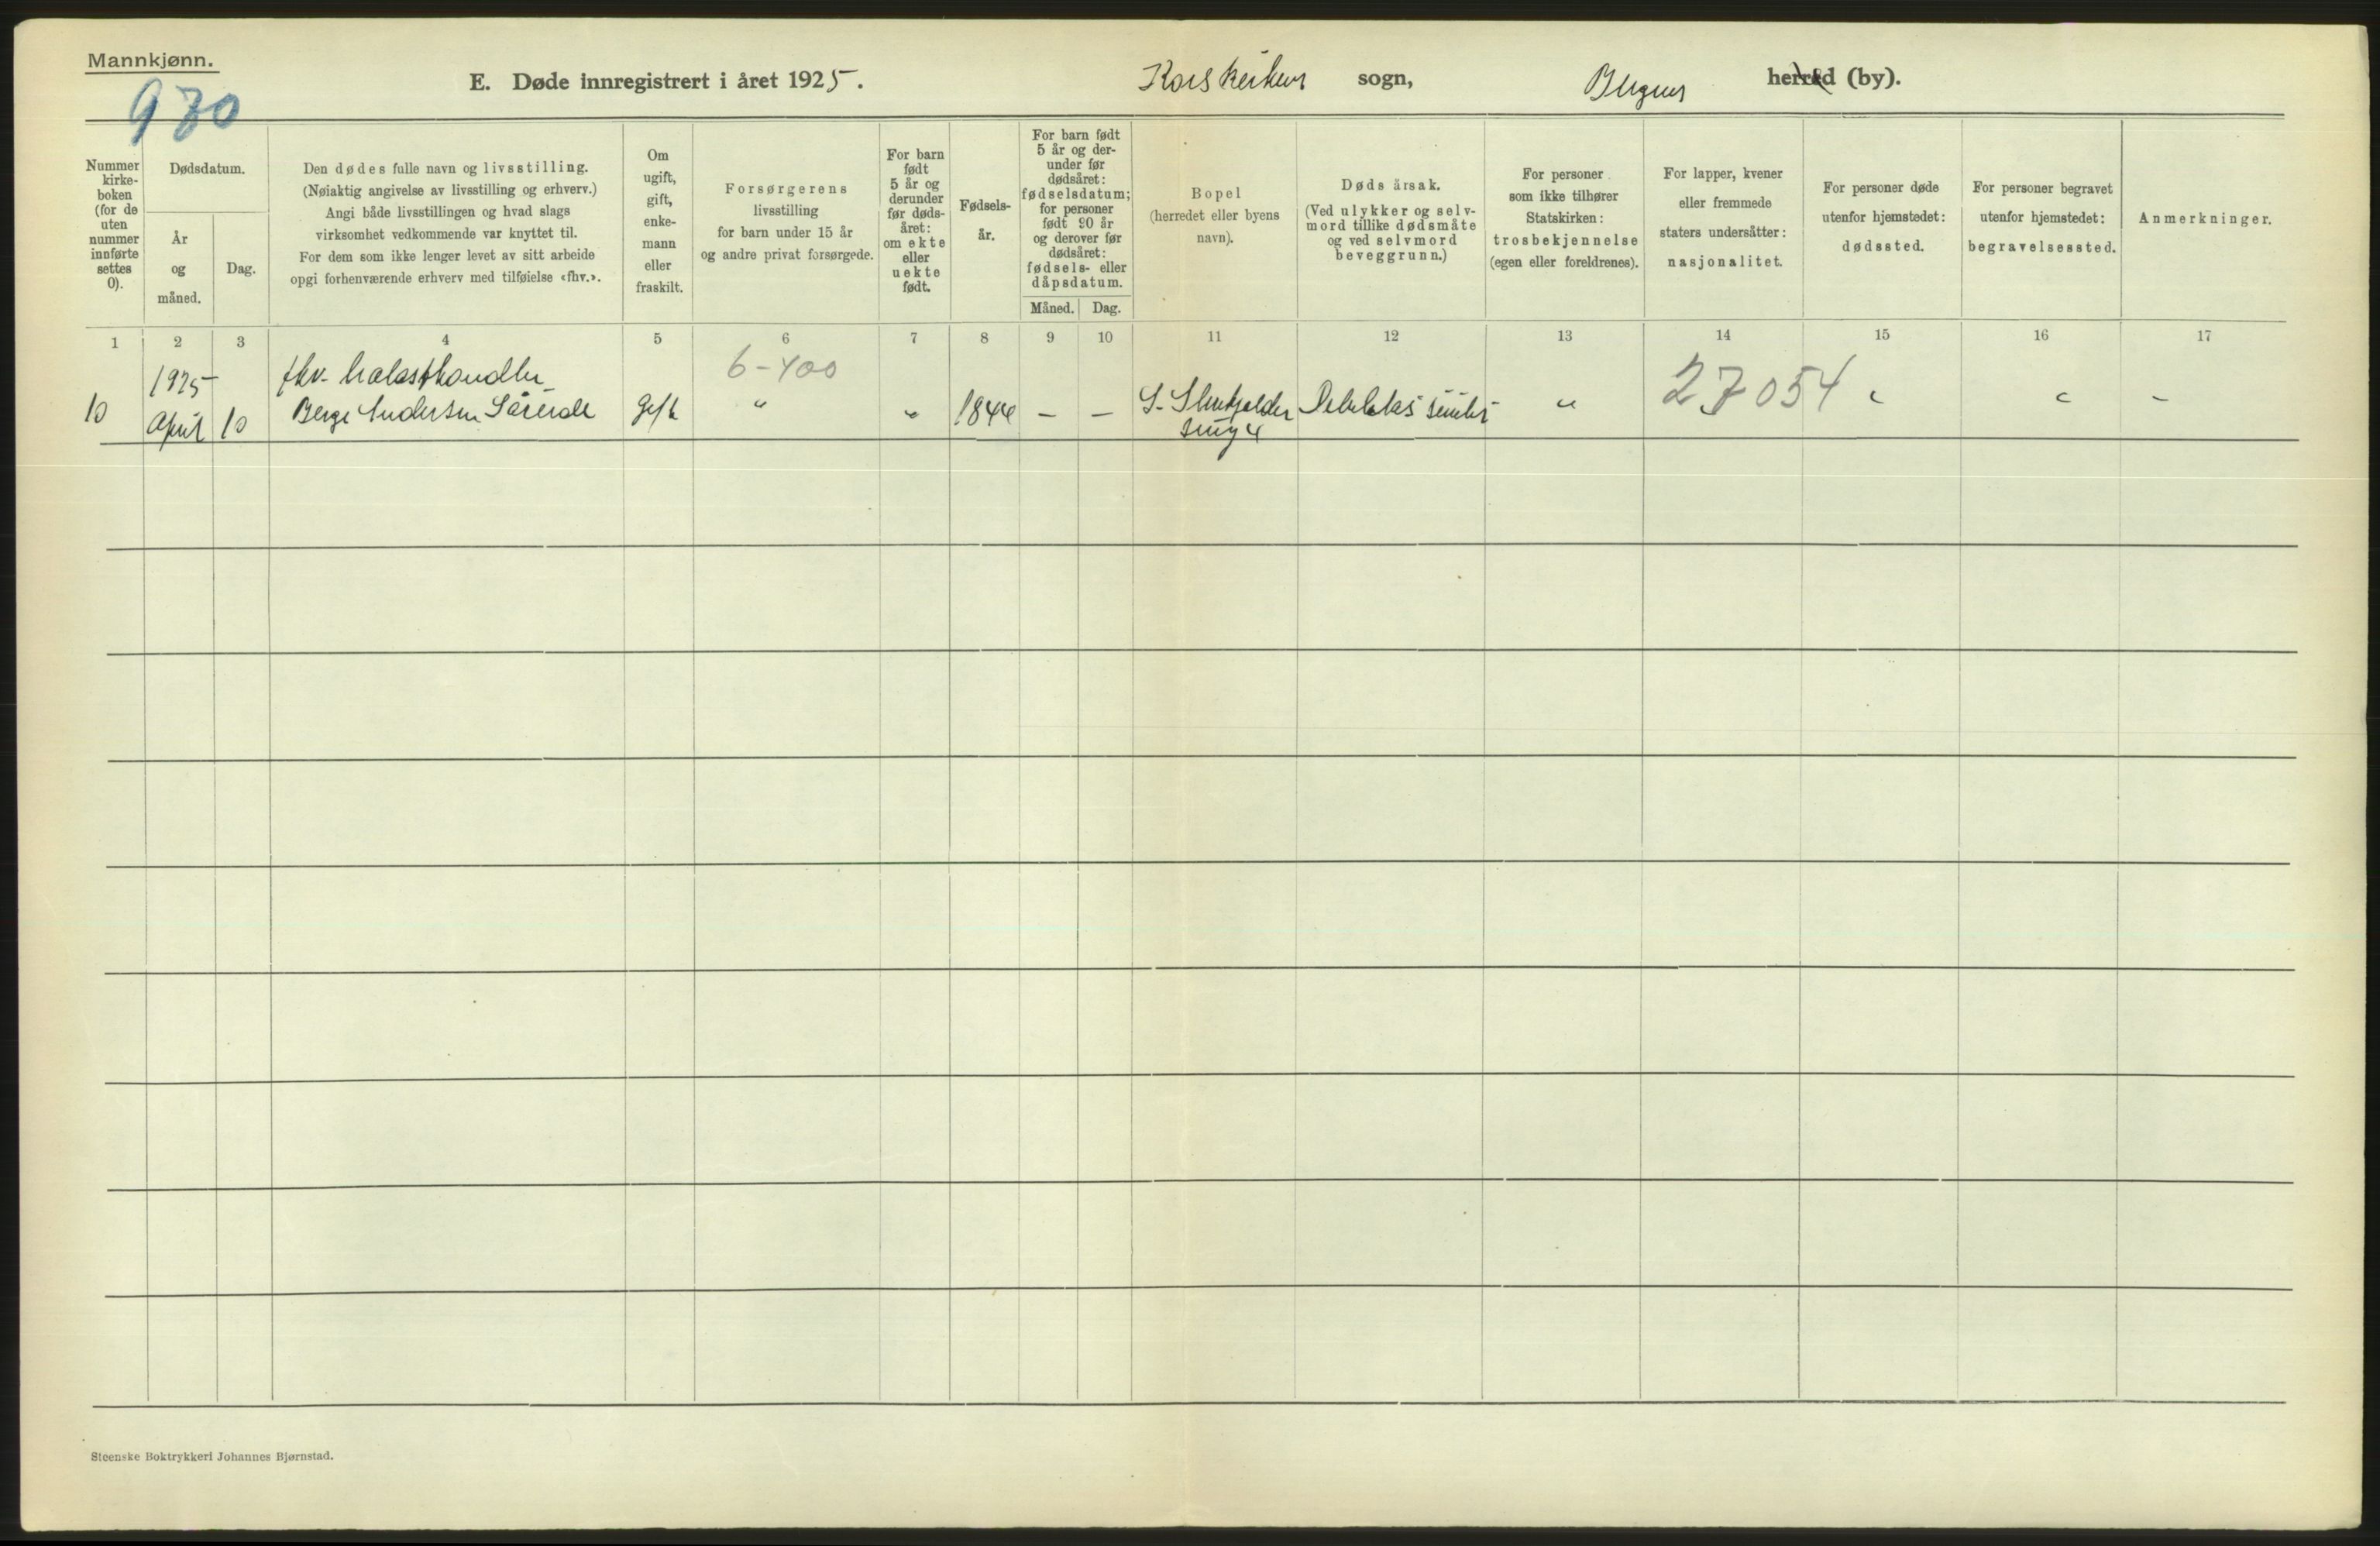 Mannkjønn.
970
E. Døde innregistrert i året 1925. Korskirken sogn, Bergen herred (by).
Nummer kirke-boken (for de uten nummer innførte settes 0).
Dødsdatum.
År og måned.
Dag.
Den dødes fulle navn og livsstilling.
(Nøiaktig angivelse av livsstilling og erhverv.)
Angi både livsstillingen og hvad slags
virksomhet vedkommende var knyttet til.
For dem som ikke lenger levet av sitt arbeide
opgi forhenværende erhverv med tilføielse «fhv.».
Om ugift, gift, enke-mann eller fraskilt.
Forsørgerens
livsstilling
for barn under 15 år
og andre privat forsørgede.
For barn født 5 år og derunder før døds-året: om ekte eller uekte født.
Fødsels-år.
For barn født 5 år og der-under før dødsåret: fødselsdatum; for personer født 90 år og derover før dødsåret: fødsels- eller dåpsdatum.
Måned. Dag.
Bopel
(herredet eller byens
navn).
Døds årsak.
(Ved ulykker og selv-
mord tillike dødsmåte
og ved selvmord
beveggrunn.)
For personer
som ikke tilhører
Statskirken:
trosbekjennelse
(egen eller foreldrenes).
For lapper, kvener
eller fremmede
staters undersåtter:
nasjonalitet.
For personer døde
utenfor hjemstedet:
dødssted.
For personer begravet
utenfor hjemstedet:
begravelsessted.
Anmerkninger.
1 2 3 4 5 6 7 8 9 10 11 12 13 14 15 16 17
1925 fhv. 6-400
10 April 10 Berge Andersen gift " " 1844 - - " 27054 " " -
Steenske Boktrykkeri Johannes Bjørnstad.